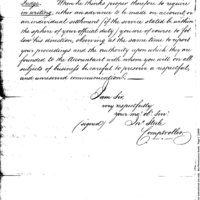 Judge. When he thinks proper therefore to require
in writing, either an advance to be made on account, or
an individual settlement (if the service stated be within
the sphere of your official duty) you are of course to fol
low his direction, observing at the same time to report
your proceedings and the authority upon which they are
founded to the Accountant with whom you will on all
subjects of business be careful to preserve a respectful,
and unreserved communication.
I am Sir
very respectfully
your mo: ob: Serv:
(signed) Jno. Steele
Comptroller